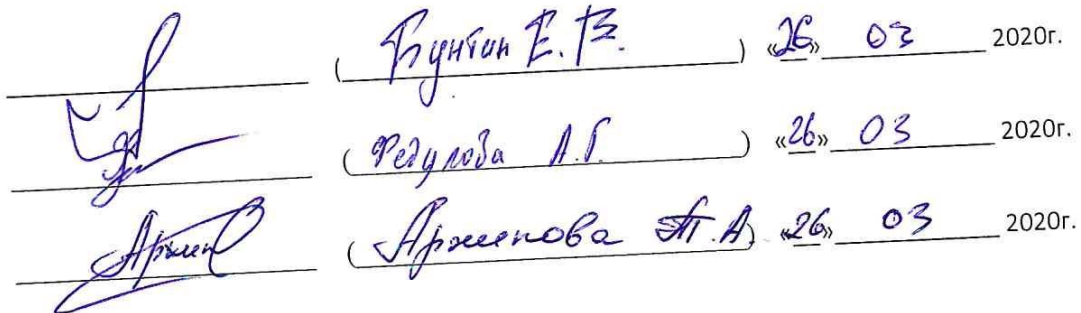 ( Бунтин Е.В. ) «26» 03 2020г.
( Федулова А.Г. ) «26» 03 2020г.
( Арженова Т.А. ) «26» 03 2020г.